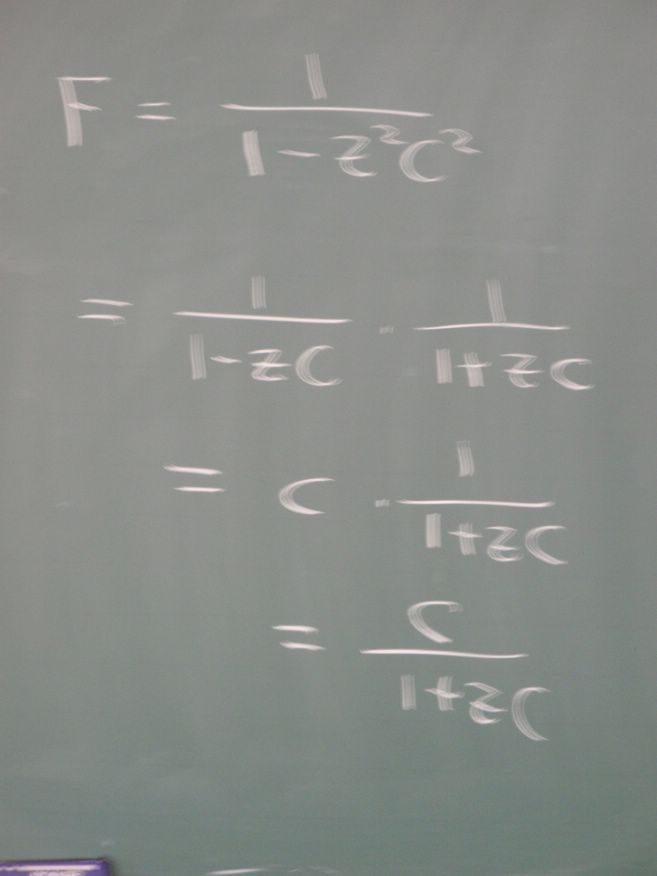 F = 1 / (1 - z²C²)
= 1 / (1 - zC) · 1 / (1 + zC)
= C · 1 / (1 + zC)
= C / (1 + zC)